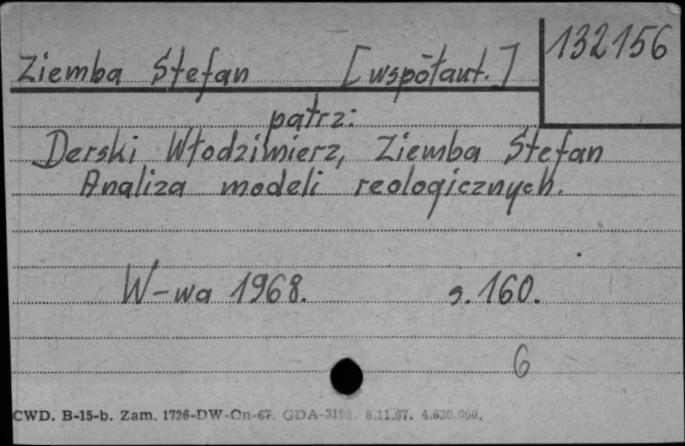 132156
Ziemba Stefan [współaut.]
patrz:
Derski Włodzimierz, Ziemba Stefan
Analiza modeli reologicznych.
W-wa 1968. s. 160.
6
CWD. B-15-b. Zam. 1726-DW-Cn-67. GDA-3198. 8.11.67. 4.630.000.